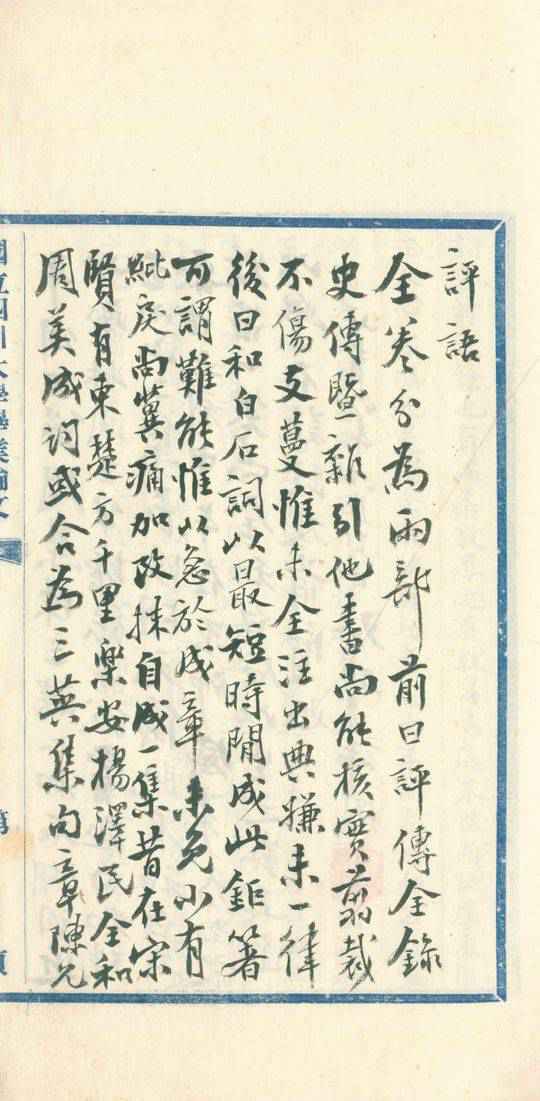 評語
全卷分為兩部前曰評傳全錄
史傳暨雜引他書尚能核實翦裁
不傷支蔓惟未全注出典賺未一律
後曰和白石詞以最短時間成此鉅著
可謂難能惟以急於成章未免小有
紕戾尚冀痛加改抹自成一集昔在宋
賢有東楚方千里樂安楊澤民全和
周美成詞或合為三英集句章陳允
國立四川大學畢業論文
第
頁